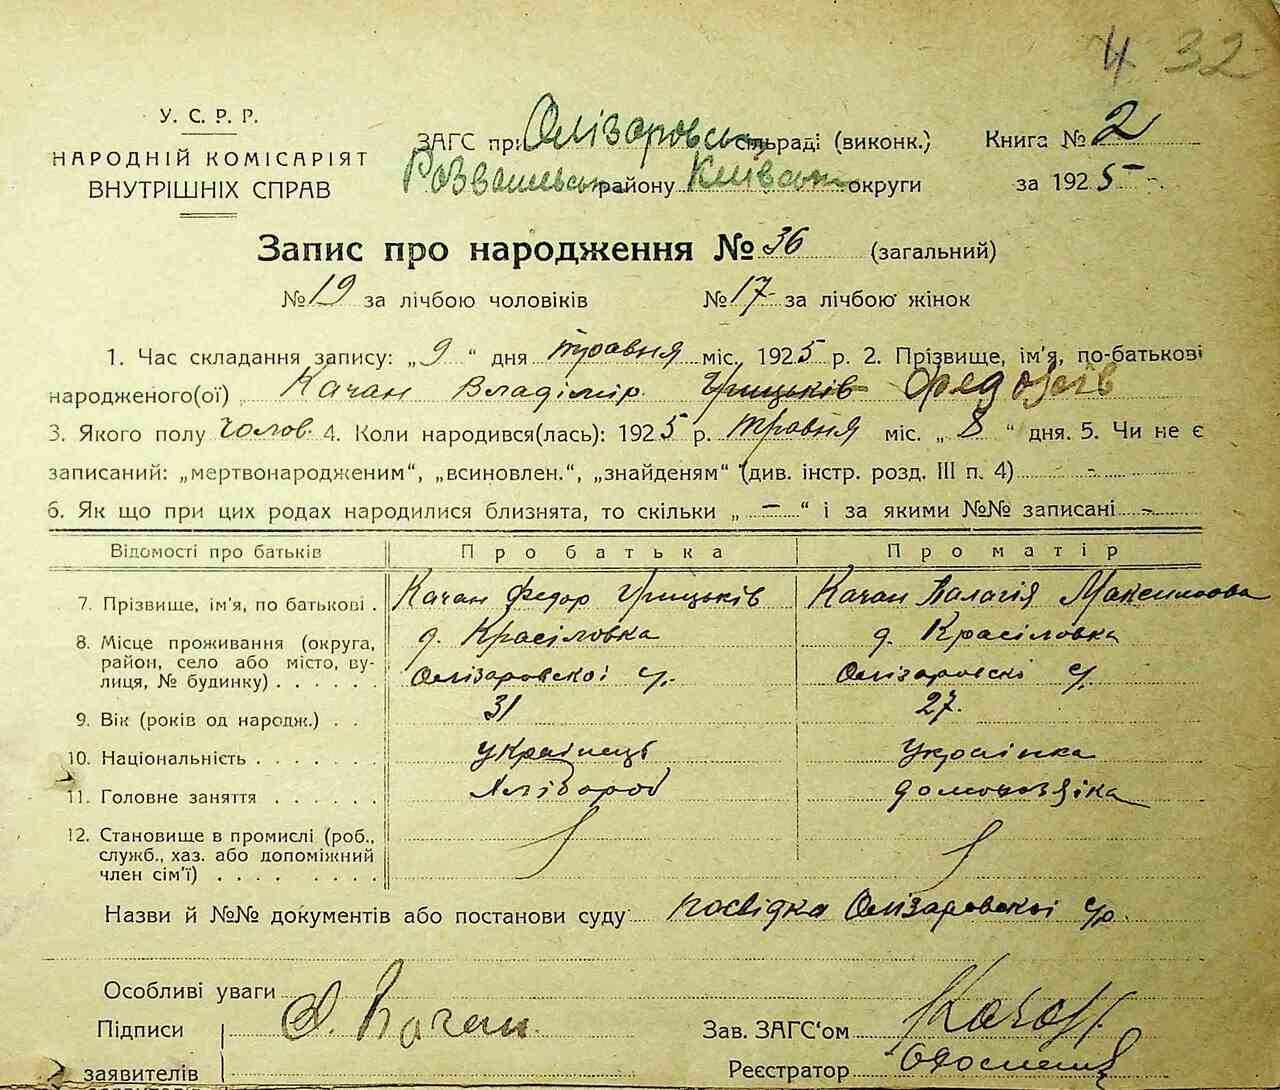 4 32
У. С. Р. Р.
НАРОДНІЙ КОМІСАРІЯТ
ВНУТРІШНІХ СПРАВ
ЗАГС при Олізаровськ сільраді (виконк.) Книга № 2
Розважевськ району Київськ округи за 1925
Запис про народження № 36 (загальний)
№ 19 за лічбою чоловіків № 17 за лічбою жінок
1. Час складання запису: „ 9 “ дня травня міс. 1925 р. 2. Прізвище, ім'я, по-батькові
народженого(ої) Качан Владімір Грицьків Федорів
3. Якого полу чолов. 4. Коли народився(лась): 1925 р. травня міс. „ 8 “ дня. 5. Чи не є
записаний: „мертвонародженим“, „всиновлен.“, „знайденям“ (див. інстр. розд. III п. 4) -
6. Як що при цих родах народилися близнята, то скільки „ – “ і за якими №№ записані -
Відомості про батьків Про батька Про матір
7. Прізвище, ім'я, по батькові . Качан Федор Грицьків Качан Палагія Максимова
8. Місце проживання (округа, д. Красіловка д. Красіловка
район, село або місто, ву-
лиця, № будинку) . . . . . . Олізаровскоі с/р. Олізаровскі с/р.
9. Вік (років од народж.) . . 31 27.
10. Національність . . . . . . українець українка
11. Головне заняття . . . . . . Хлібороб домохозяіка
12. Становище в промислі (роб.,
служб., хаз. або допоміжний
член сім'ї) . . . . . . . .
Назви й №№ документів або постанови суду посвідка Олізаровскоі с/р.
Особливі уваги
Підписи Качан Зав. ЗАГС'ом
заявителів Реєстратор